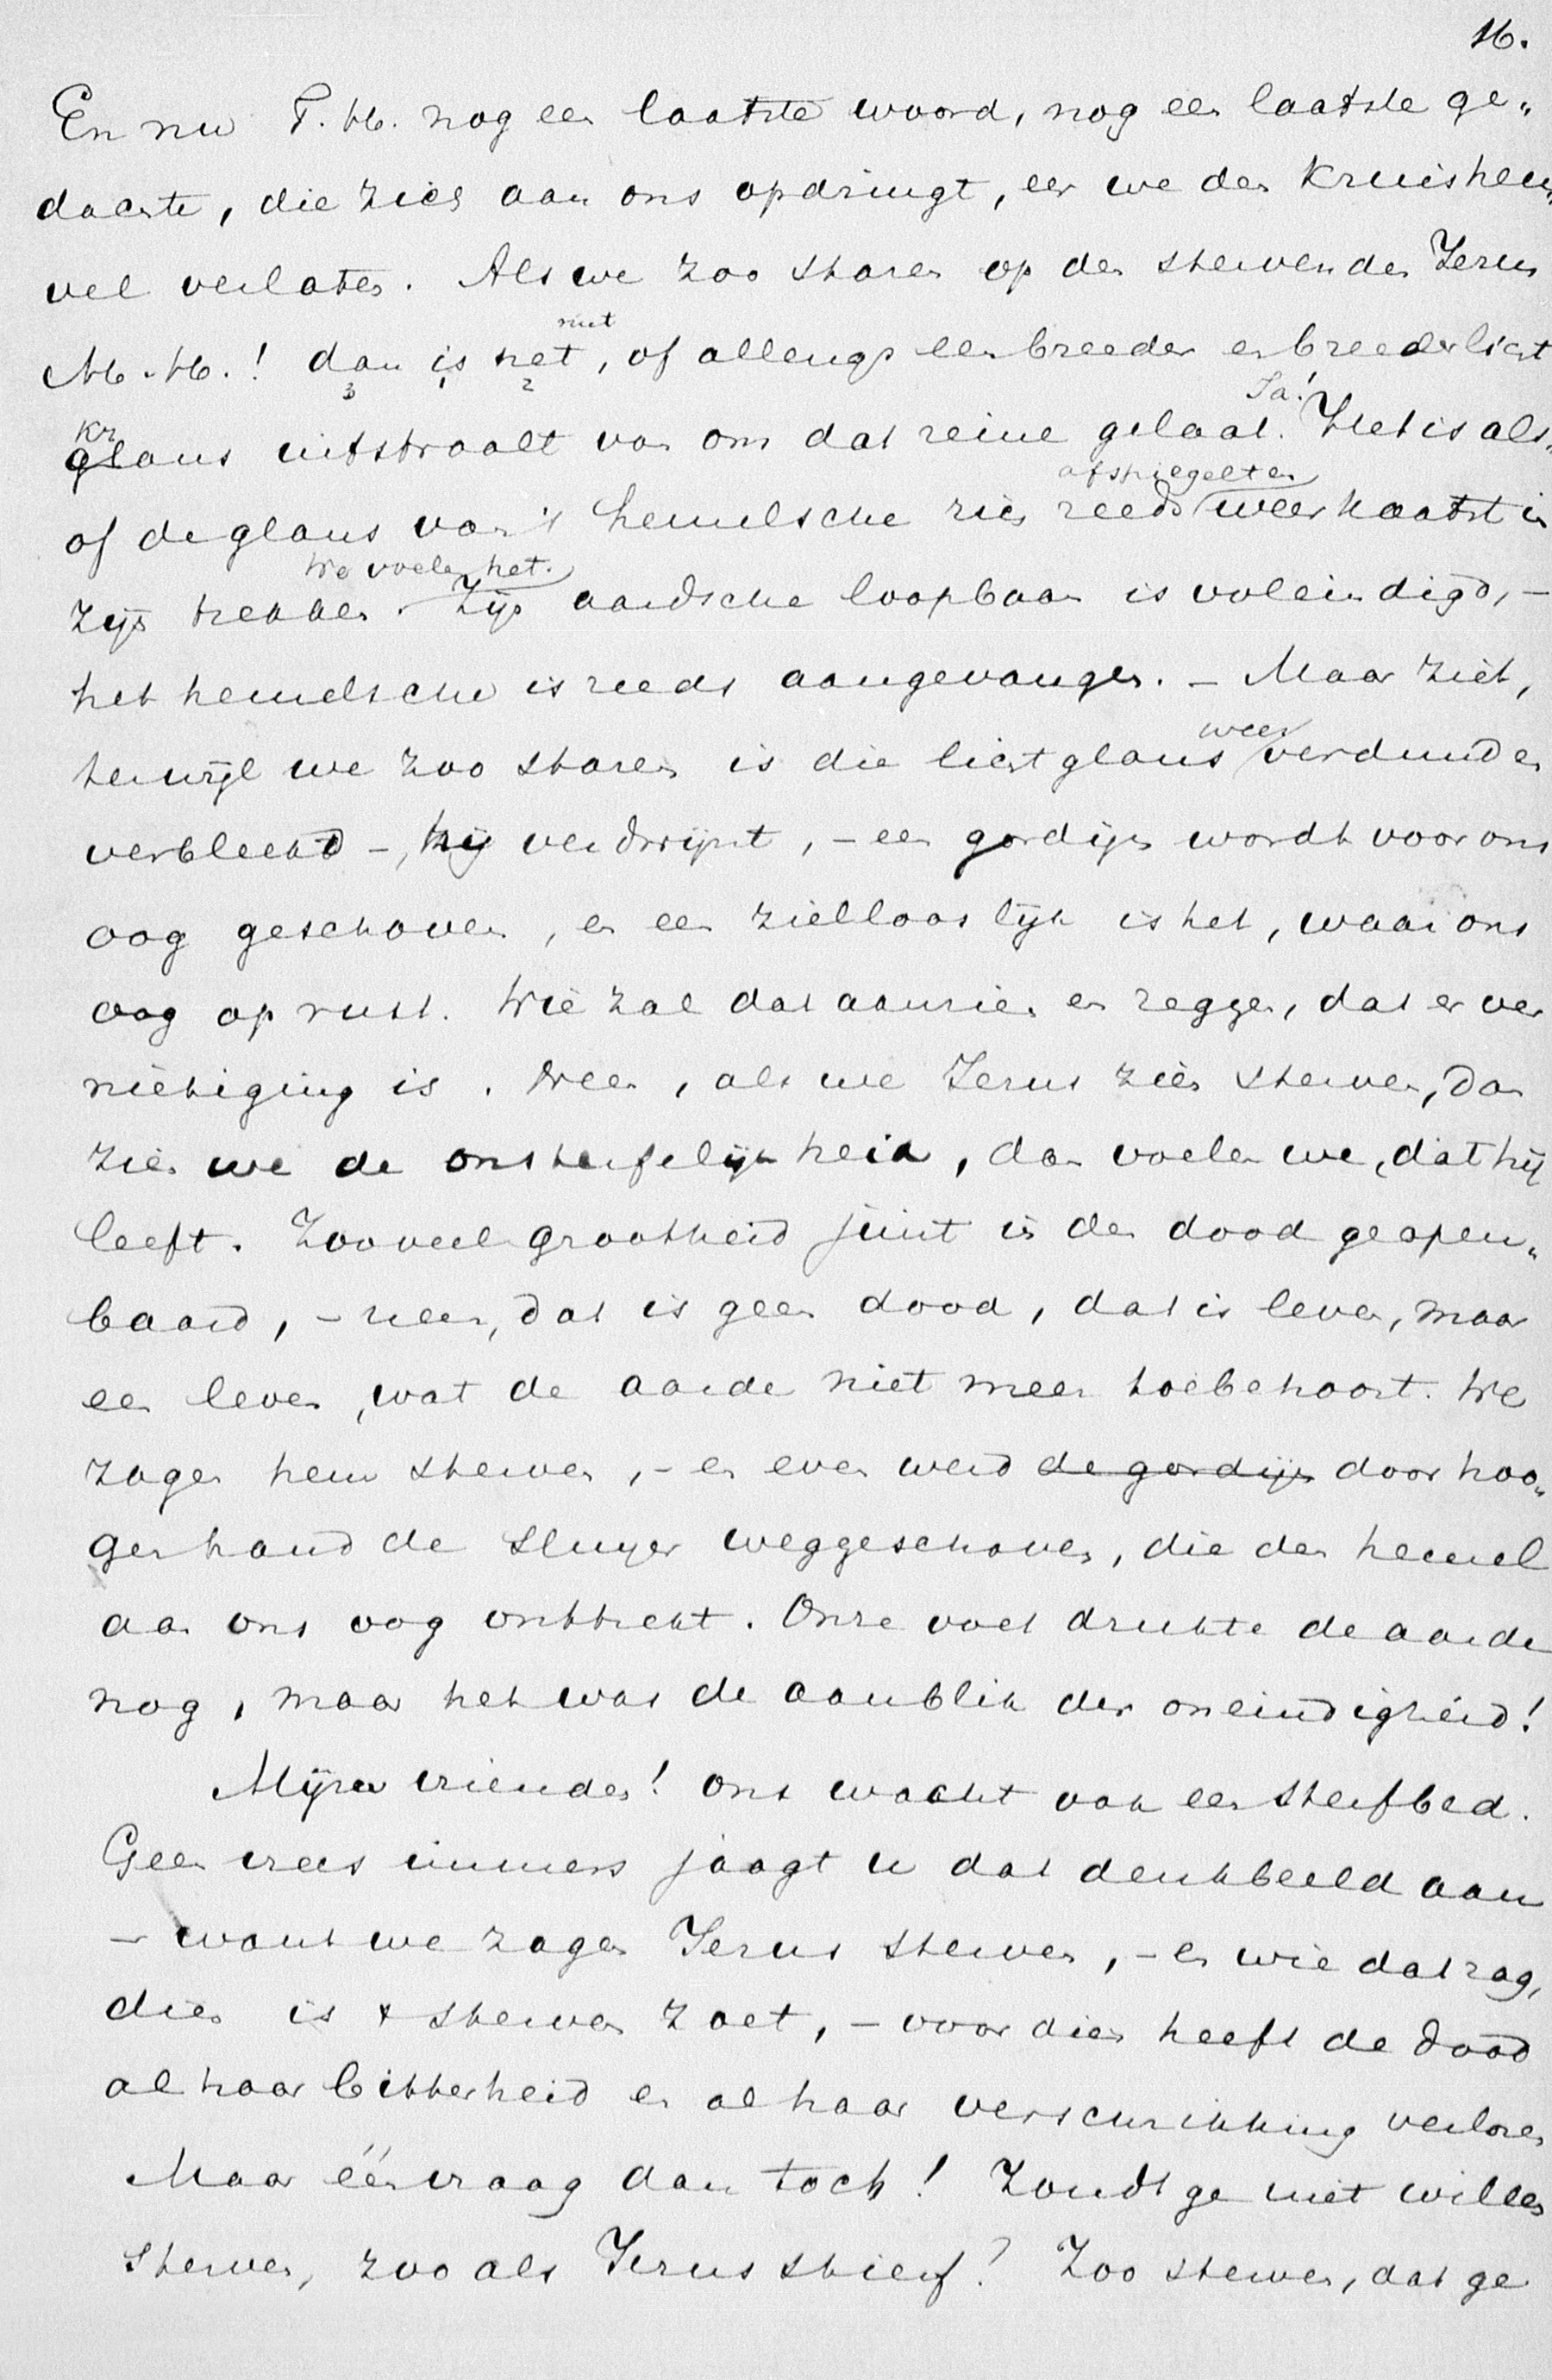 16.
En nu T. H. nog een laatste woord, nog een laatste ge„
dachte, die zich aan ons opdringt, eer we den kruisheu„
vel verlaten. Als we zoo staren op den stervenden Jezus
M. H.! dan is het niet, of allengs een breeder en breeder licht
krglans uitstraalt van om dat reine gelaat. Ja! Het is als„
of de glans van 't hemelsche zien reeds afspiegelt en weerkaatst in
zijn trekken. We voelen het. Zijn aardsche loopbaan is voleindigd, –
het hemelsche is reeds aangevangen. – Maar ziet,
terwijl we zoo staren is die lichtglans weer verdund en
verbleekt –, hij verdwijnt, – een gordijn wordt voor ons
oog geschoven, en een zielloos lijk is het, waar ons
oog op rust. Wie zal dat aanzien en zeggen, dat er ver
nietiging is. Neen, als we Jezus zien sterven, dan
zien we de onsterfelijkheid, dan voelen we, dat hij
leeft. Zooveel grootheid juist in den dood geopen„
baard, – neen, dat is geen dood, dat is leven, maar
een leven, wat de aarde niet meer toebehoort. We
zagen hem sterven, – en even werd de gordijn door hoo„
ger hand de sluyer weggeschoven, die den hemel
aan ons oog onttrekt. Onze voet drukte de aarde
nog, maar het was de aanblik der oneindigheid!
Mijne vrienden! ons wacht ook een sterfbed.
Geen vrees immers jaagt u dat denkbeeld aan
– want we zagen Jezus sterven, – en wie dat zag,
dien is 't sterven zoet, – voor dien heeft de dood
al haar bitterheid en al haar verschrikking verloren
Maar één vraag dan toch! Zoudt ge niet willen
sterven, zoo als Jezus stierf? Zoo sterven, dat ge